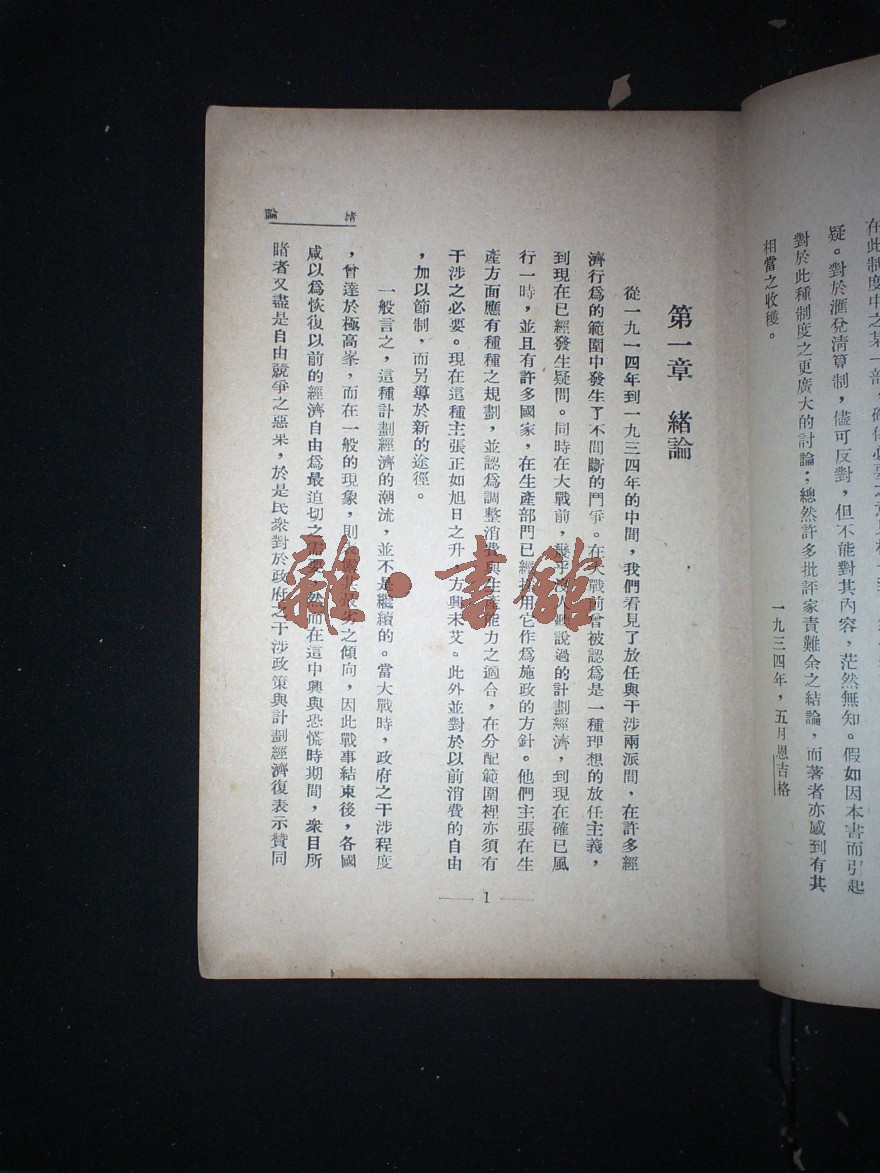 疑。對於滙兌清算制,儘可反對,但不能對其內容,茫然無知。假如因本書而引起
對於此種制度之更廣大的討論;總然許多批評家責難余之結論,而著者亦感到有其
相當之收穫。
一九三四年,五月恩吉格
第一章 緒論
從一九一四年到一九三四年的中間,我們看見了放任與干涉兩派間,在許多經
濟行爲的範圍中發生了不間斷的鬥爭。在大戰前曾被認爲是一種理想的放任主義,
到現在已經發生疑問。同時在大戰前,幾乎沒人說過的計劃經濟,到現在確已風
行一時,並且有許多國家,在生產部門已經採用它作爲施政的方針。他們主張在生
產方面應有種種之規劃,並認爲調整消費與生產能力之適合,在分配範圍裡亦須有
干涉之必要。現在這種主張正如旭日之升,方興未艾。此外並對於以前消費的自由
,加以節制,而另導於新的途徑。
一般言之,這種計劃經濟的潮流,並不是繼續的。當大戰時,政府之干涉程度
,曾達於極高峯,而在一般的現象,則之傾向,因此戰事結束後,各國
咸以爲恢復以前的經濟自由爲最迫切之需要。然而在這中興與恐慌時期間,衆目所
睹者又盡是自由競爭之惡果,於是民衆對於政府之干涉政策與計劃經濟復表示贊同
緒論
1
雜·書館